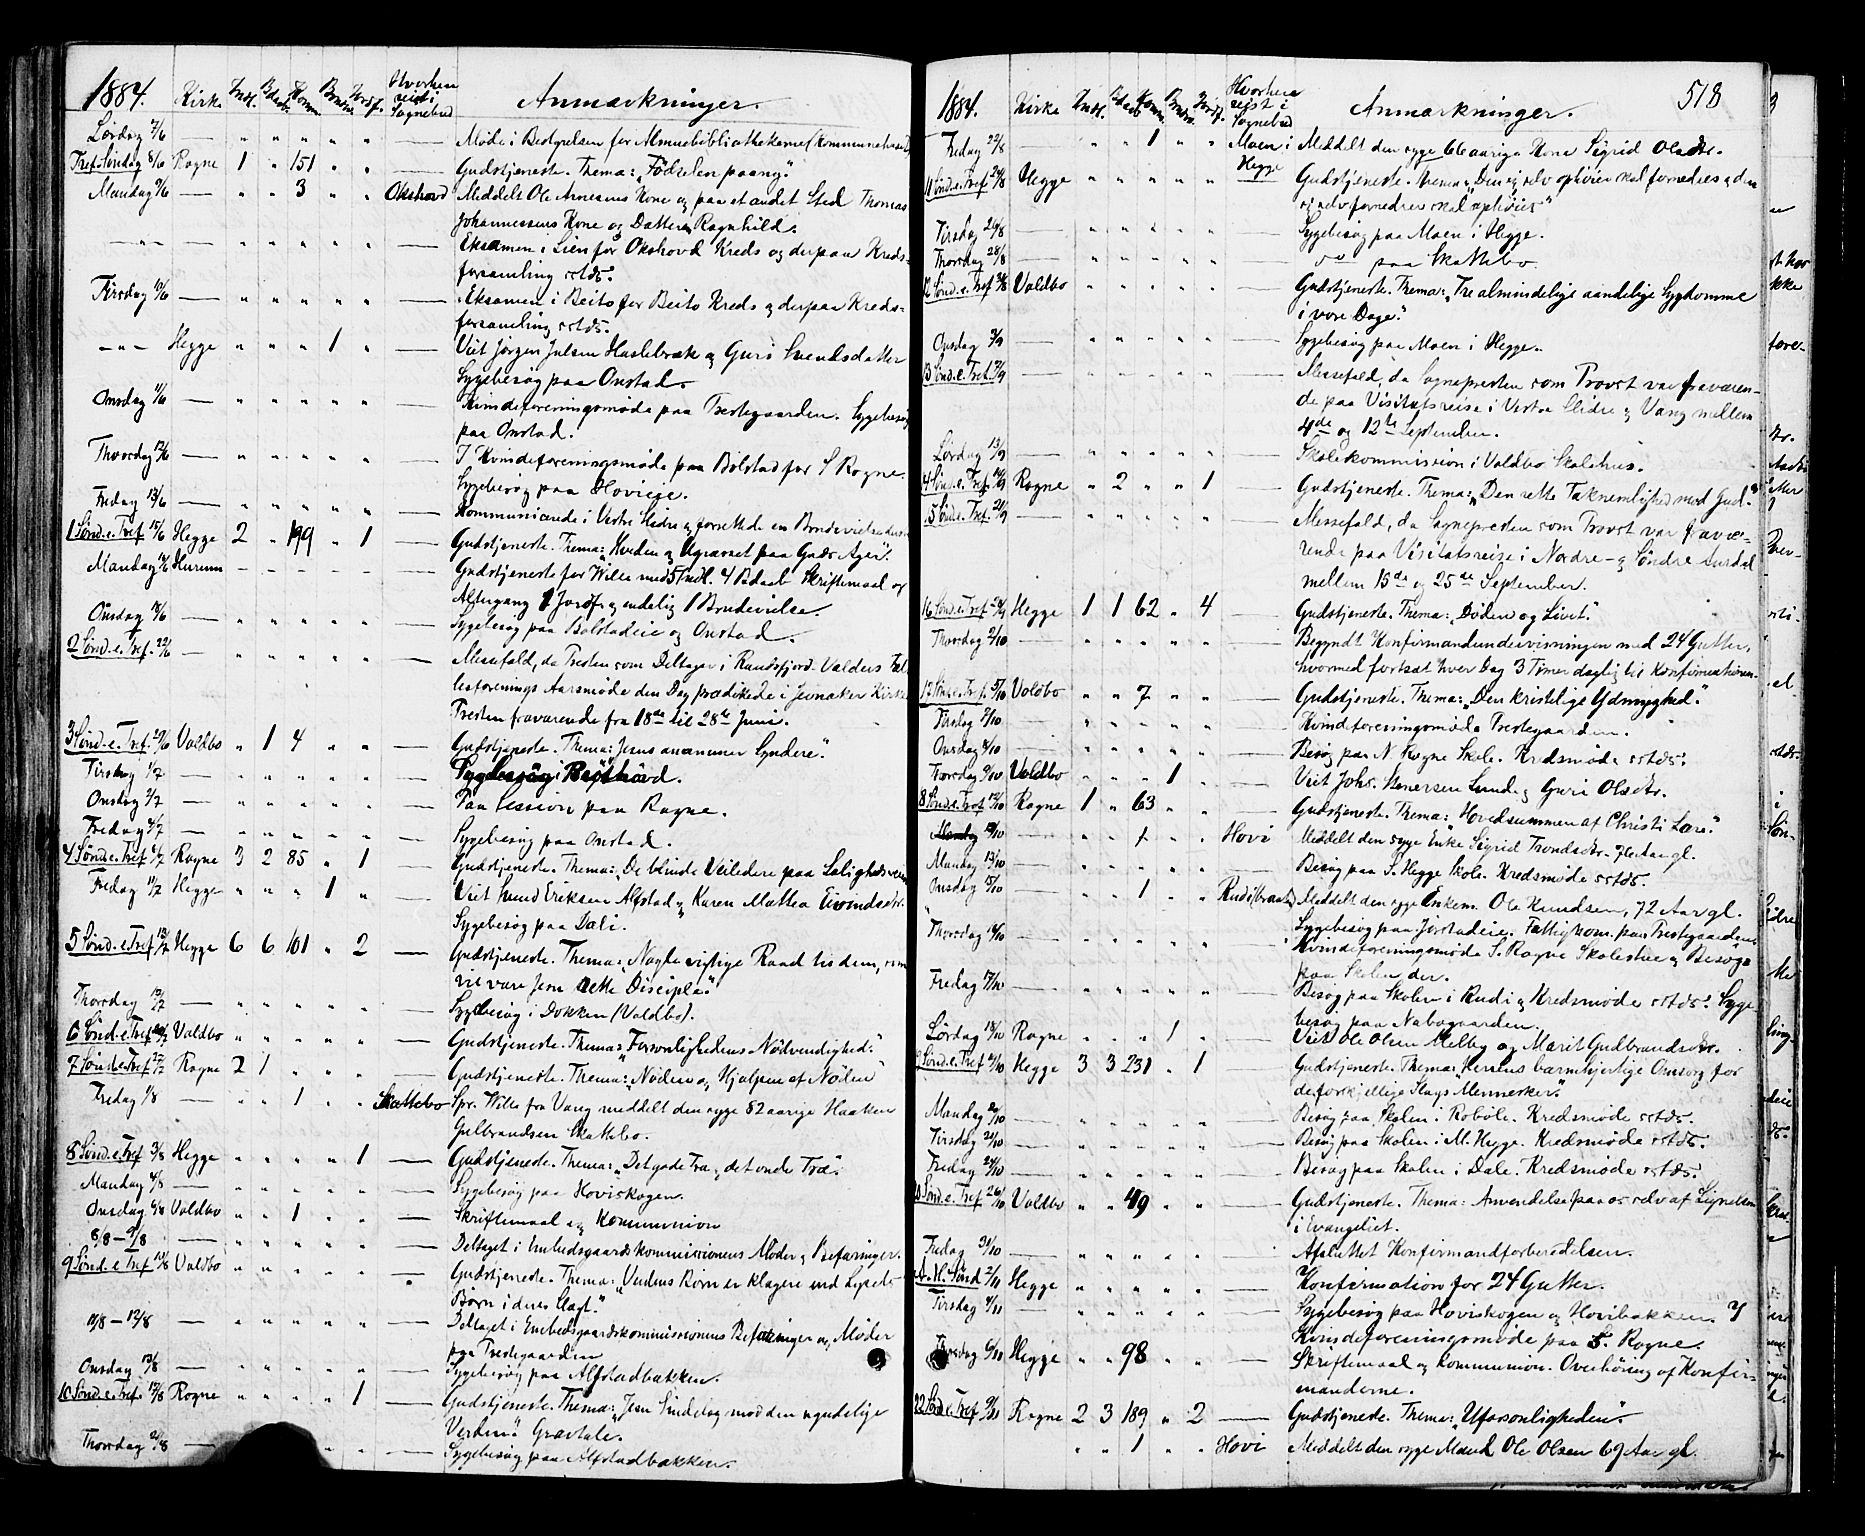 1884. Kirke Indl. Bdaab Komm. Brudev. Jordf. Hvorhen reist i Sognebud Anmærkninger.
Lørdag 7/6 — " " " " " — Møde i Bestyrelsen for Almuebibliothekerne
Tref. Søndag 8/6 Rogne 1 " 151 " " — Gudstjeneste. Thema: "Fødselen paany."
Mandag 9/6 — " " 3 " " Okshovd Meddelt Ole Arnesens Kone og paa et andet Sted Thomas
Johannessens Kone og Datteren Ragnhild.
— " — " " " " " — Eksamen i Lien for Okshovd Kreds og derpaa Kreds-
forsamling sstds.
Tirsdag 10/6 — " " " " " — Eksamen i Beito for Beito Kreds og derpaa Kreds-
forsamling sstds.
— " — Hegge " " " 1 " — Viet Jørgen Julsen Haslebræk og Guri Svendsdatter
Sygebesøg paa Onstad.
Onsdag 11/6 — " " " " " — Kvindeforeningsmøde paa Prestegaarden. Sygebesøg
paa Onstad.
Thorsdag 12/6 — " " " " " — I Kvindeforeningsmøde paa Bolstad for S. Rogne.
Sygebesøg paa Hovieie.
Fredag 13/6 — " " " " " — Kommunicande i Vestre Slidre og forrettede en Brudevielse
1 Sønd. e. Tref. 15/6 Hegge 2 " 199 " 1 — Gudstjeneste. Thema: "Hveden og Ugræsset paa Guds Ager".
Mandag 16/6 Hurum - - - - - — Gudstjeneste for Wille med 5 Indl. 4 Bdaab Skriftemaal og
Altergang 1 Jordf. og endelig 1 Brudevielse.
Onsdag 18/6 — " " " " " — Sygebesøg paa Bolstadeie og Onstad.
2 Sønd. e. Tref. 22/6 — " " " " " — Messefald, da Presten som Deltager i Randsfjord-Valders
lesforenings Aarsmøde den Dag prædikede i Jevnaker Kirke
Presten fraværende fra 18de til 28de Juni.
3 Sønd. e. Tref. 29/6 Voldbo " 1 4 " " — Gudstjeneste. Thema: "Jesus anammer Syndere".
Tirsdag 1/7 — " " " " " — Sygebesøg i
Onsdag 2/7 — " " " " " — Paa Session paa Rogne.
Fredag 4/7 — " " " " " — Sygebesøg paa Onstad.
4 Sønd. e. Tref. 6/7 Rogne 3 2 85 " 1 — Gudstjeneste. Thema: "De blinde Veiledere paa Salighedsveien
Fredag 11/7 Hegge " " " 1 " — Viet Knud Eriksen Alfstad og Karen Mathea Eivindsdtr.
Sygebesøg paa Dali.
5 Sønd. e. Tref. 13/7 Hegge 6 6 101 " 2 — Gudstjeneste. Thema: "Nogle vigtige Raad til dem, som
vil være Jesu rette Disciple."
Thorsdag 17/7 — " " " " " — Sygebesøg i Dokken (Voldbo).
6 Sønd. e. Tref. 20/7 Voldbo " " " " " — Gudstjeneste. Thema: "Forsonlighedens Nødvendighed."
7 Sønd. e. Tref. 27/7 Rogne 2 1 " " " — Gudstjeneste. Thema: "Nøden og Hjælpen af Nøden"
Fredag 1/8 — " " 1 " " Skattebo Spr. Wille fra Vang meddelt den syge 82 aarige Haaken
Gulbrandsen Skattebo.
8 Sønd. e. Tref. 3/8 Hegge " " " " 1 — Gudstjeneste. Thema: "Det gode Træ og det onde Træ".
Mandag 4/8 — " " " " " — Sygebesøg paa Hoviskogen.
Onsdag 6/8 Voldbo " " 1 " " — Skriftemaal og Kommunion
8/8 – 9/8 — " " " " " — Deltaget i Embedsgaardskommissionens Møder og Befaringer.
9 Sønd. e. Tref. 10/8 Voldbo " " " " " — Gudstjeneste. Thema: "Verdens Børn er klogere end Lysets
Børn i deres Slagt."
11/8 – 12/8 — " " " " " — Deltaget i Embedsgaardskommissionens Befaringer og Møder
paa Prestegaarden
Onsdag 13/8 — " " " " " — Sygebesøg paa Alfstadbakken.
10 Sønd. e. Tref. 17/8 Rogne " " " " 1 — Gudstjeneste. Thema: "Jesu Sindelag mod den ugudelige
Verden." Gravtale.
Thorsdag 21/8 — " " — Sygebesøg paa Alfstadbakken.
518
1884. Kirke Indl. Bdaab Kom. Brudev. Jordf. Hvorhen reist i Sognebud Anmærkninger.
Fredag 22/8 — " " 1 " " Moen i Hegge Meddelt den syge 66 aarige Kone Sigrid Olsdtr.
11 Sønd. e. Tref. 24/8 Hegge " " " " " — Gudstjeneste. Thema: "Den sig selv ophøier skal fornedres og den
sig selv fornedrer skal ophøies"
Tirsdag 26/8 — " " " " " — Sygebesøg paa Moen i Hegge.
Thorsdag 28/8 — " " " " " — " paa Skattebo.
12 Sønd. e. Tref. 31/8 Voldbo " " " " " — Gudstjeneste. Thema: "Tre almindelige aandelige Sygdomme
i vore Dage."
Onsdag 3/9 — " " " " " — Sygebesøg paa Moen i Hegge.
13 Sønd. e. Tref. 7/9 — " " " " " — Messefald, da Sognepresten som Provst var fraværen-
de paa Visitatsreise i Vestre Slidre og Vang mellem
4de og 12te September.
Lørdag 13/9 — " " " " " — Skolekommission i Voldbo Skolehus.
14 Sønd. e. Tref. 14/9 Rogne " 2 " " 1 — Gudstjeneste. Thema: "Den rette Taknemlighed mod Gud."
15 Sønd. e. Tref. 21/9 — " " " " " — Messefald, da Sognepresten som Provst var fravæ-
rende paa Visitatsreise i Nordre- og Søndre Aurdal
mellem 15de og 25de September.
16 Sønd. e. Tref. 28/9 Hegge 1 1 62 " 4 — Gudstjeneste. Thema: "Døden og Livet".
Thorsdag 2/10 — " " " " " — Begyndt Konfirmandundervisningen med 24 Gutter,
hvormed fortsat hver Dag 3 Timer daglig til Konfirmationen.
17 Sønd. e. Tref. 5/10 Voldbo " " 7 " " — Gudstjeneste. Thema: "Den kristelige Ydmyghed."
Tirsdag 7/10 — " " " " " — Kvindeforeningsmøde Prestegaarden.
Onsdag 8/10 — " " " " " — Besøg paa N. Rogne Skole. Kredsmøde sstds.
Thorsdag 9/10 Voldbo " " " 1 " — Viet Johs. Stenersen Lunde og Guri Olsdtr.
18 Sønd. e. Tref. 12/10 Rogne 1 " 63 " " — Gudstjeneste. Thema: "Hovedsummen af Christi Lære."
Mandag 13/10 — " " 1 " " Hovi Meddelt den syge Enke Sigrid Trondsdtr. Aar gl.
Mandag 13/10 — " " " " " — Besøg paa S. Hegge Skole. Kredsmøde sstds.
Onsdag 15/10 — " " 1 " " Rudi(braaten) Meddelt den syge Enkem. Ole Knudsen, 72 Aar gl.
Sygebesøg paa Jørstadeie. Fattigkom. paa Prestegaarden.
Thorsdag 16/10 — " " " " " — Kvindeforeningsmøde S. Rogne Skolestue og Besøg
paa Skolen der.
Fredag 17/10 — " " " " " — Besøg paa Skolen i Rudi og Kredsmøde sstds. Syge-
besøg paa Nabogaarden.
Lørdag 18/10 Rogne " " " 1 " — Viet Ole Olsen Melby og Marit Gudbrandsdtr.
19 Sønd. e. Tref. 19/10 Hegge 3 3 231 " 1 — Gudstjeneste. Thema: "Herrens barmhjertige Omsorg for
de forskjellige Slags Mennesker."
Mandag 20/10 — " " " " " — Besøg paa Skolen i Robøle. Kredsmøde sstds.
Tirsdag 21/10 — " " " " " — Besøg paa Skolen i M. Hegge. Kredsmøde sstds.
Fredag 24/10 — " " " " " — Besøg paa Skolen i Dale. Kredsmøde sstds.
20 Sønd. e. Tref. 26/10 Voldbo " " 49 " " — Gudstjeneste. Thema: Anvendelse paa os selv af Lignelsen
i Evangeliet.
Fredag 31/10 — " " " " " — Afsluttet Konfirmandforberedelsen.
A. H. Sønd. 2/11 Hegge " " " " " — Konfirmation for 24 Gutter.
Tirsdag 4/11 — " " " " " — Sygebesøg paa Hoviskogen og Hovibakken. I
Kvindeforeningsmøde paa S. Rogne.
Thorsdag 6/11 Hegge " " 98 " " — Skriftemaal og Kommunion. Overhøring af Konfir-
manderne.
22 Sønd. e. Tref. 9/11 Rogne 2 3 189 " 2 — Gudstjeneste. Thema: "Uforsonligheden".
" " 1 " " Hovi Meddelt den syge Mand Ole Olsen 69 Aar gl.